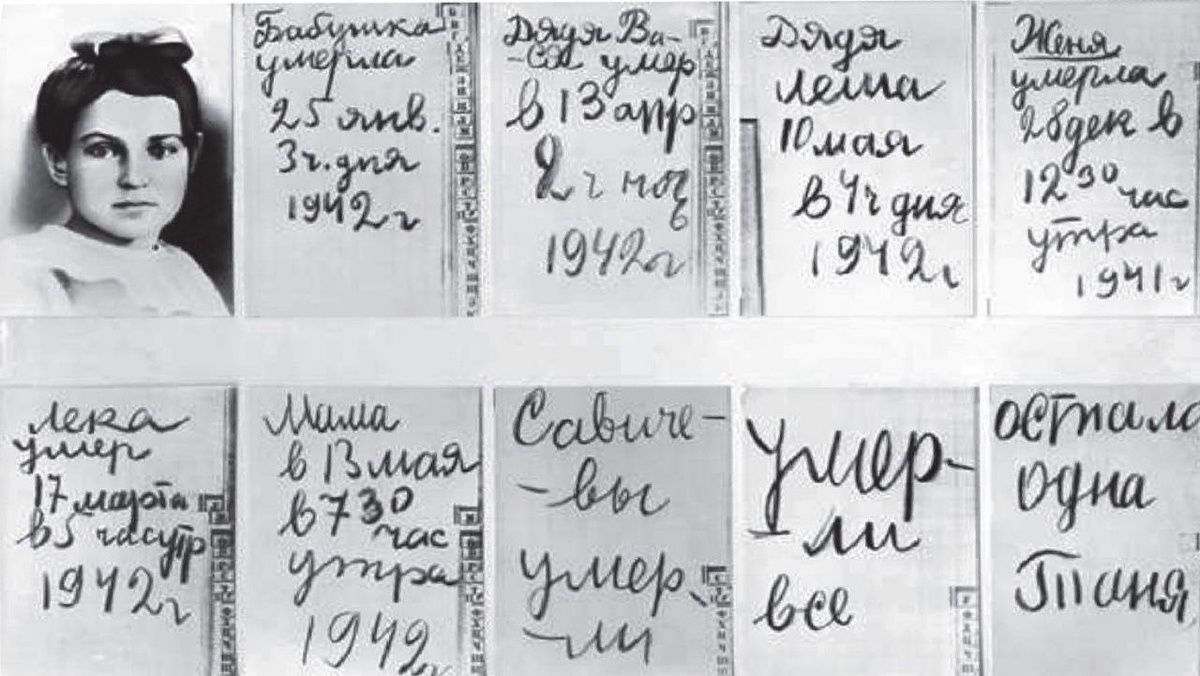 Бабушка
умерла
25 янв.
3ч. дня
1942 г
Дядя Ва-
-ся умер
в 13 апр
2 ч ноч
ь
1942 г
Дядя
Леша
10 мая
в 4ч дня
1942 г
Женя
умерла
28 дек в
12 30 час
утра
1941 г
Лека
умер
17 марта
в 5 час утр
1942 г
Мама
в 13 мая
в 7 30
час
утра
1942 г
Савиче-
-вы
умер-
-ли
умер-
-ли
все
остала
одна
Таня